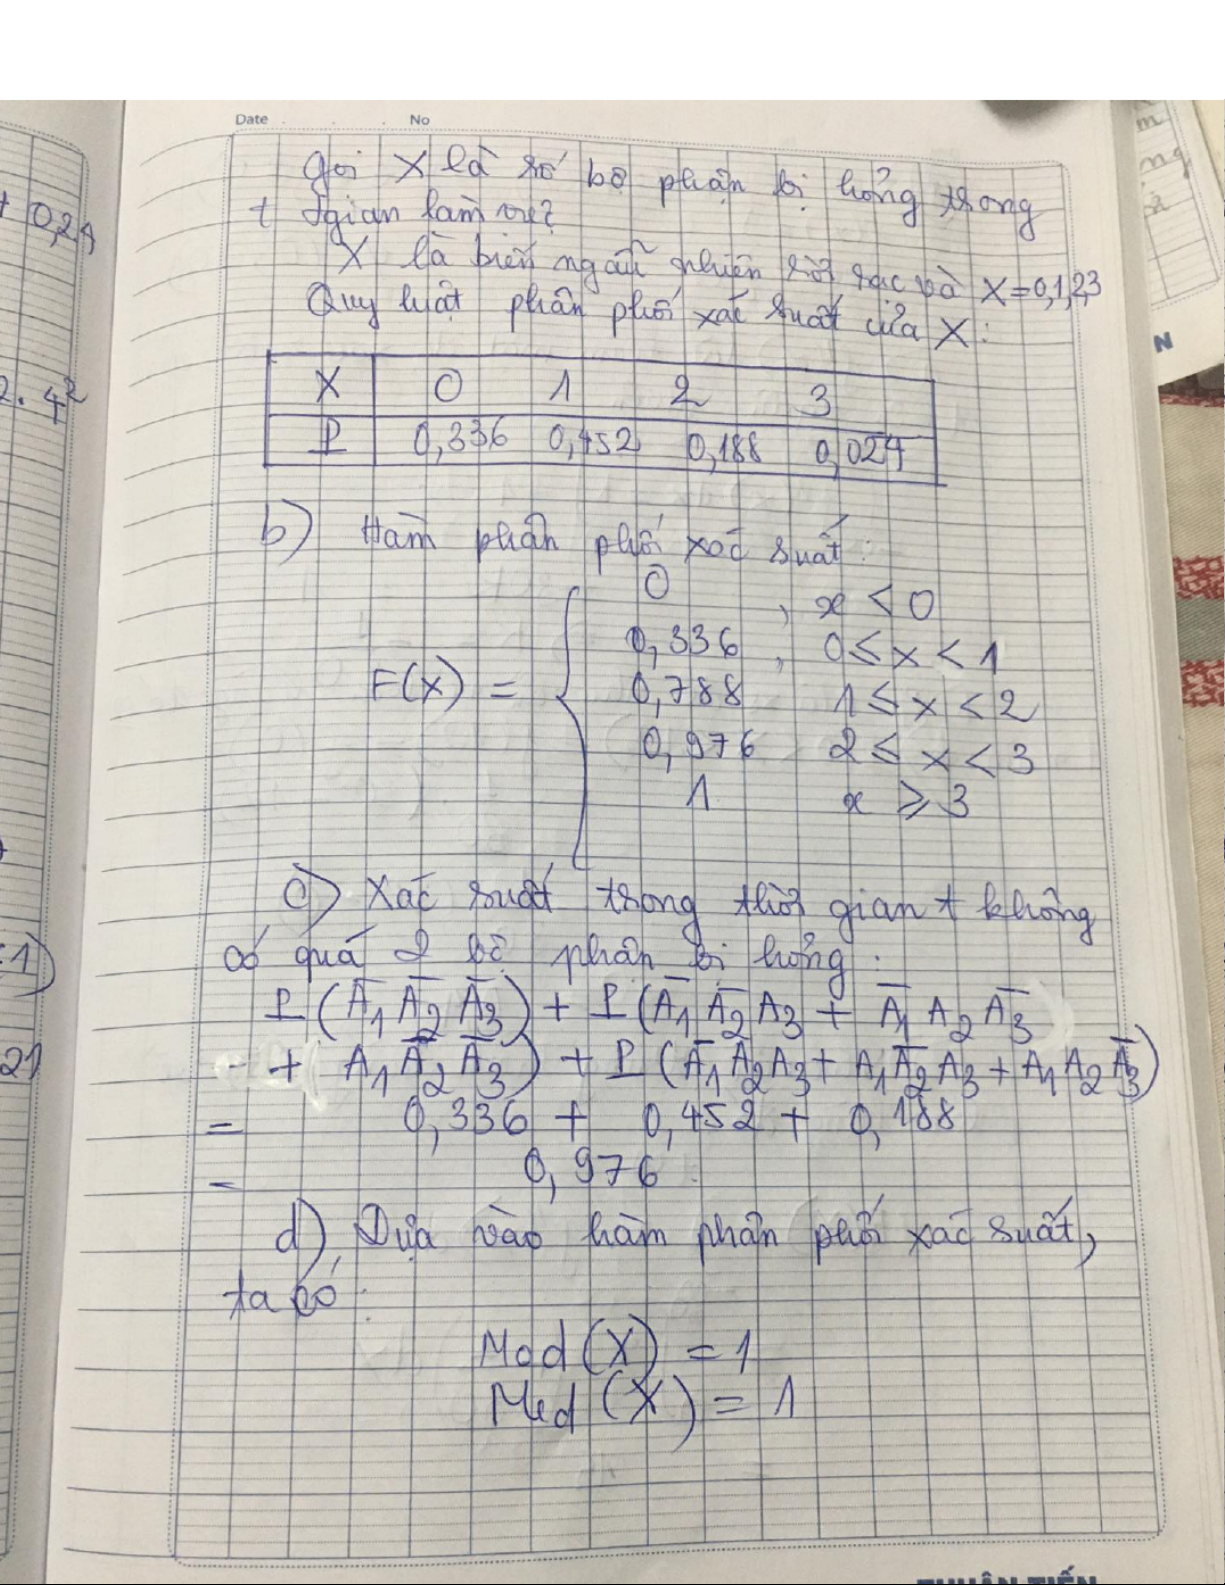 Date . . . No
Gọi X là số bộ phận bị hỏng trong
t tgian làm việc
X là biến ngẫu nhiên rời rạc và X=0,1,2,3
Quy luật phân phối xác suất của X:
X 0 1 2 3
P 0,336 0,452 0,188 0,024
b) Hàm phân phối xác suất:
0 , x < 0
0,336 , 0 ≤ x < 1
F(x) = 0,788 1 ≤ x < 2
0,976 2 ≤ x < 3
1 x ≥ 3
c) Xác suất trong thời gian t không
có quá 2 bộ phận bị hỏng:
P(A̅1 A̅2 A̅3) + P(A̅1 A̅2 A3 + A̅1 A2 A̅3
+ A1 A̅2 A̅3) + P(A̅1 A̅2 A3 + A1 A̅2 A3 + A1 A2 A̅3)
= 0,336 + 0,452 + 0,188
= 0,976
d) Dựa vào hàm phân phối xác suất,
ta có:
Mod(X) = 1
Med(X) = 1
0,24
2. 4²
1)
21
N